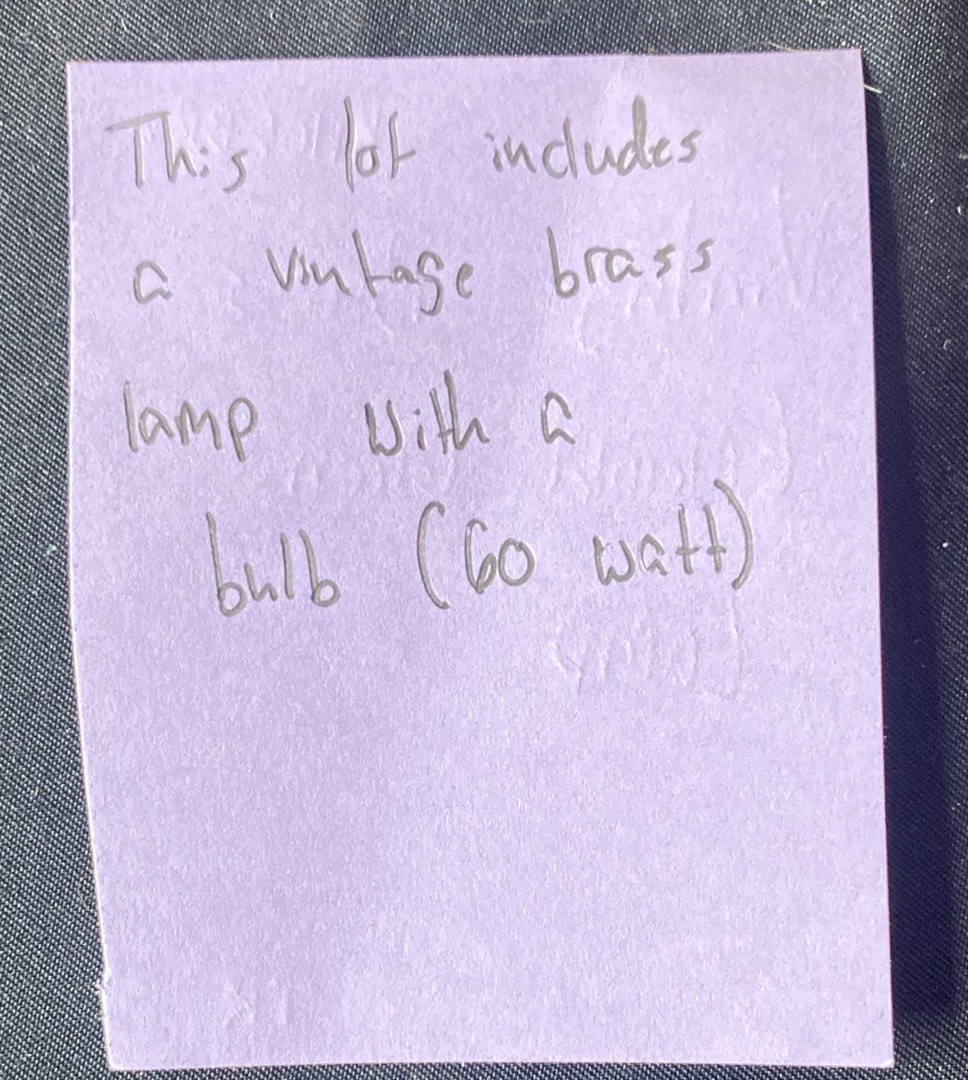 This lot includes
a vintage brass
lamp with a
bulb (60 watt)